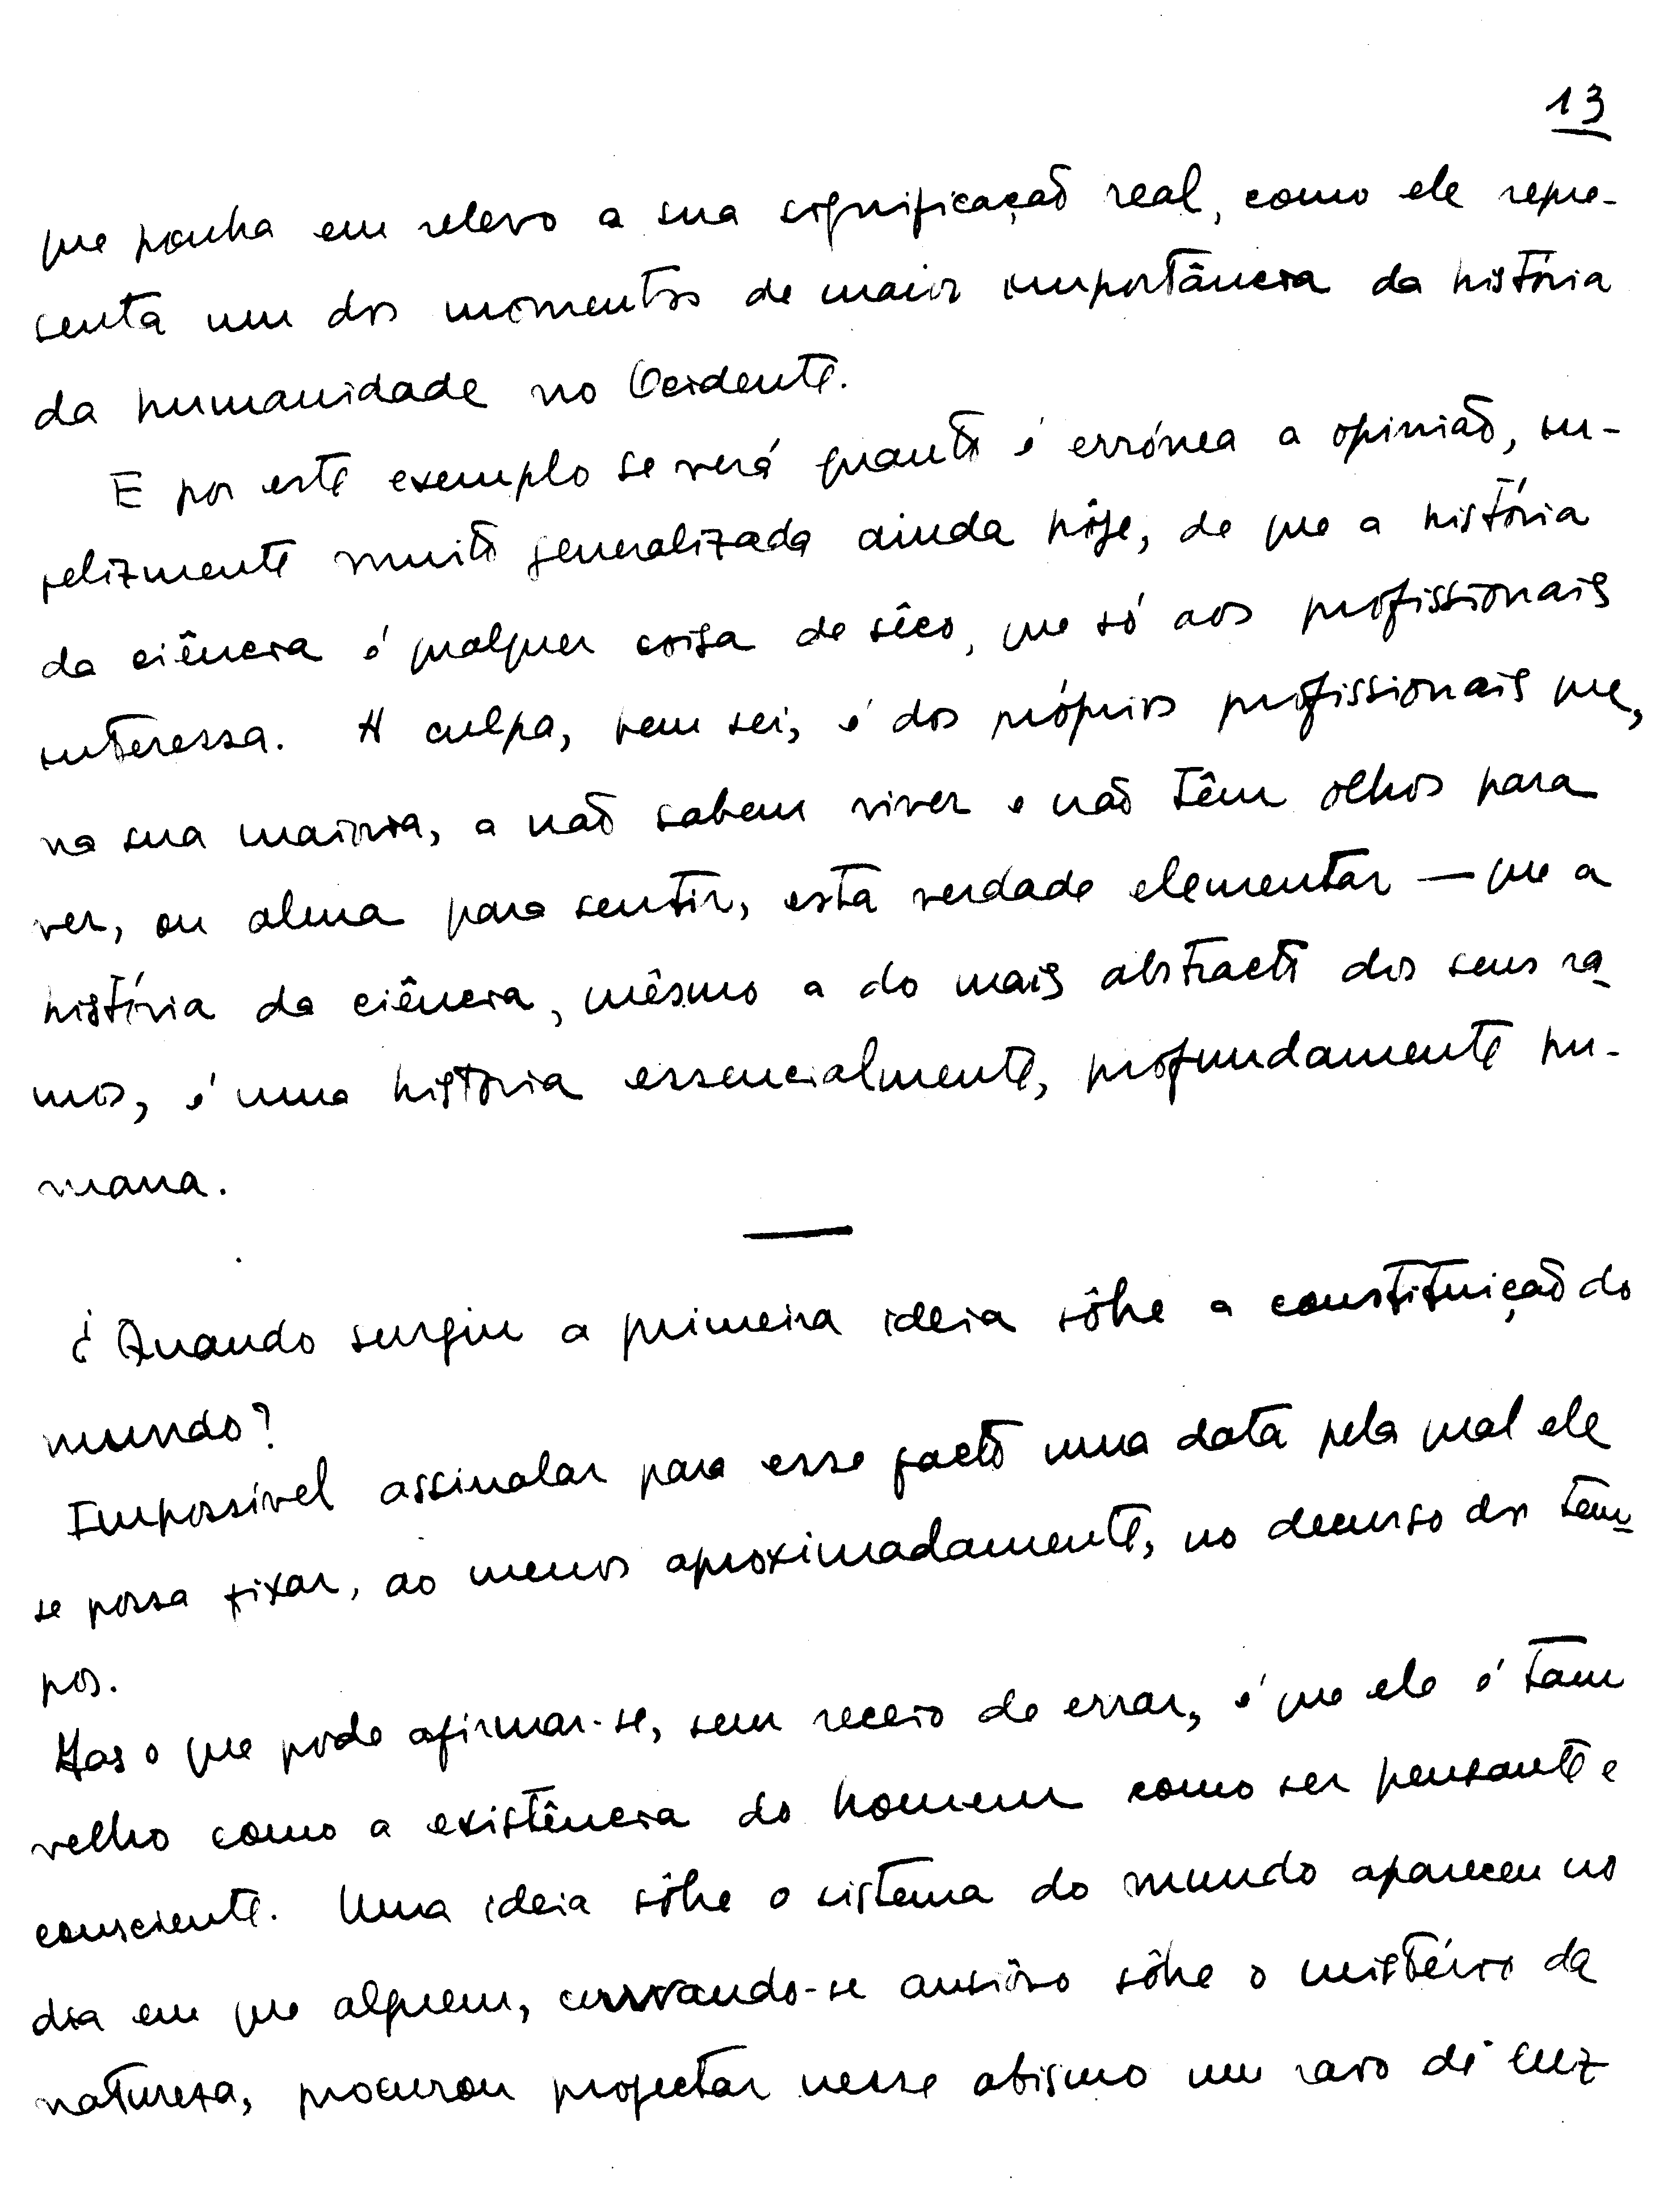 13
que ponha em relevo a sua significação real, como ele repre-
senta um dos momentos de maior importância da história
da humanidade no Ocidente.
E por este exemplo se verá quanto é errónea a opinião, in-
felizmente muito generalizada ainda hôje, de que a história
da ciência é qualquer coisa de sêco, que só aos profissionais
interessa. A culpa, bem sei, é dos próprios profissionais que,
na sua maioria, a não sabem viver e não têm olhos para
ver, ou alma para sentir, esta verdade elementar — que a
história da ciência, mêsmo a do mais abstracto dos seus ra-
mos, é uma história essencialmente, profundamente hu-
mana.
¿Quando surgiu a primeira ideia sôbre a constituição do
mundo?
Impossível assinalar para esse facto uma data pela qual ele
se possa fixar, ao menos aproximadamente, no decurso dos tem-
pos.
Mas o que pode afirmar-se, sem receio de errar, é que ele é tam
velho como a existência do homem como ser pensante e
consciente. Uma ideia sôbre o sistema do mundo apareceu no
dia em que alguem, curvando-se ansiôso sôbre o mistério da
natureza, procurou projectar nesse abismo um raio de luz